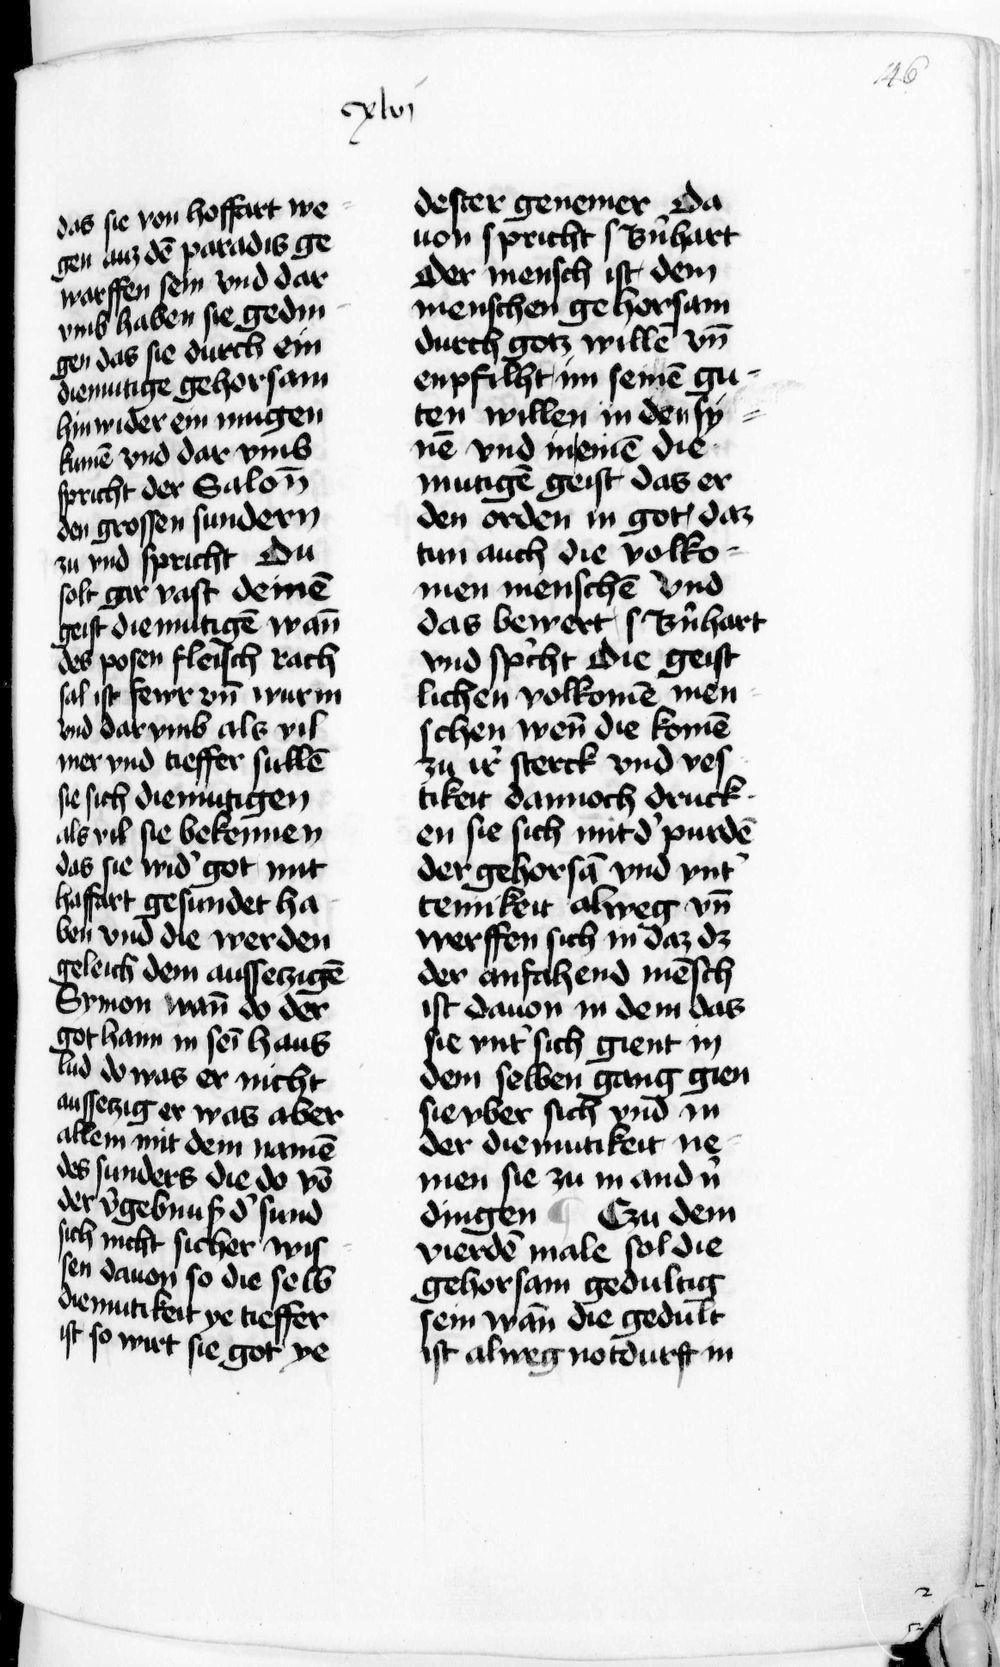 146
cxlvj
das sie von hoffart we-
gen auz dē paradis ge
warffen sein vnd dar
vmb haben sie gedin-
gen das sie durch ein
diemutige gehorsam
hin wider ein mugen
kumē vnd dar vmb
spricht der Salon̄
den grossen sundern
zu vnd spricht Du
solt gar vast deinē
geist diemutigē wan̄
des posen fleisch rach
sal ist fewr vn̄ wurm
vnd dar vmb als vil
mer vnd tieffer sullē
sie sich diemutigen
als vil sie bekennen
das sie wid' got mit
haffart gesundet ha-
ben vnd die werden
geleich dem aussetzigē
Symon wan̄ do der
got hann in sei haus
lud do was er nicht
aussetzig er was aber
allein mit dem namē
des sunders die do vō
der v'gebnuß d' sund
sich nicht sicher wis-
sen dauon so die selb
diemutikeit ye tieffer
ist so wirt sie got ye
dester genemer Da
uon spricht s Bn̄hart
Der mensch ist dem
menschen gehorsam
durch gotz willē vn̄
enpfilht im seinē gu-
ten willen in den sy-
nē vnd in einē die
mutigē geist das er
den orden in got daz
tun auch die volko-
men menschē Vnd
das bewert s Bn̄hart
vnd sp'cht Die geist
lichen volkomē men-
schen wen̄ die komē
zu ir' sterck vnd ves
tikeit dannoch druck-
en sie sich mit d' purdē
der gehorsā vnd vnt'
tenikeit alweg vn̄
werffen sich in daz dz
der anfahend mēsch
ist dauon in dem das
sie vnt' sich gient in
dem selben gang gien
sie vber sich vnd in
der diemutikeit ne-
men sie zu in and'n
dingen Czu dem
vierdē male sol die
gehorsam gedultig
sein wan̄ die gedult
ist alweg notdurft in